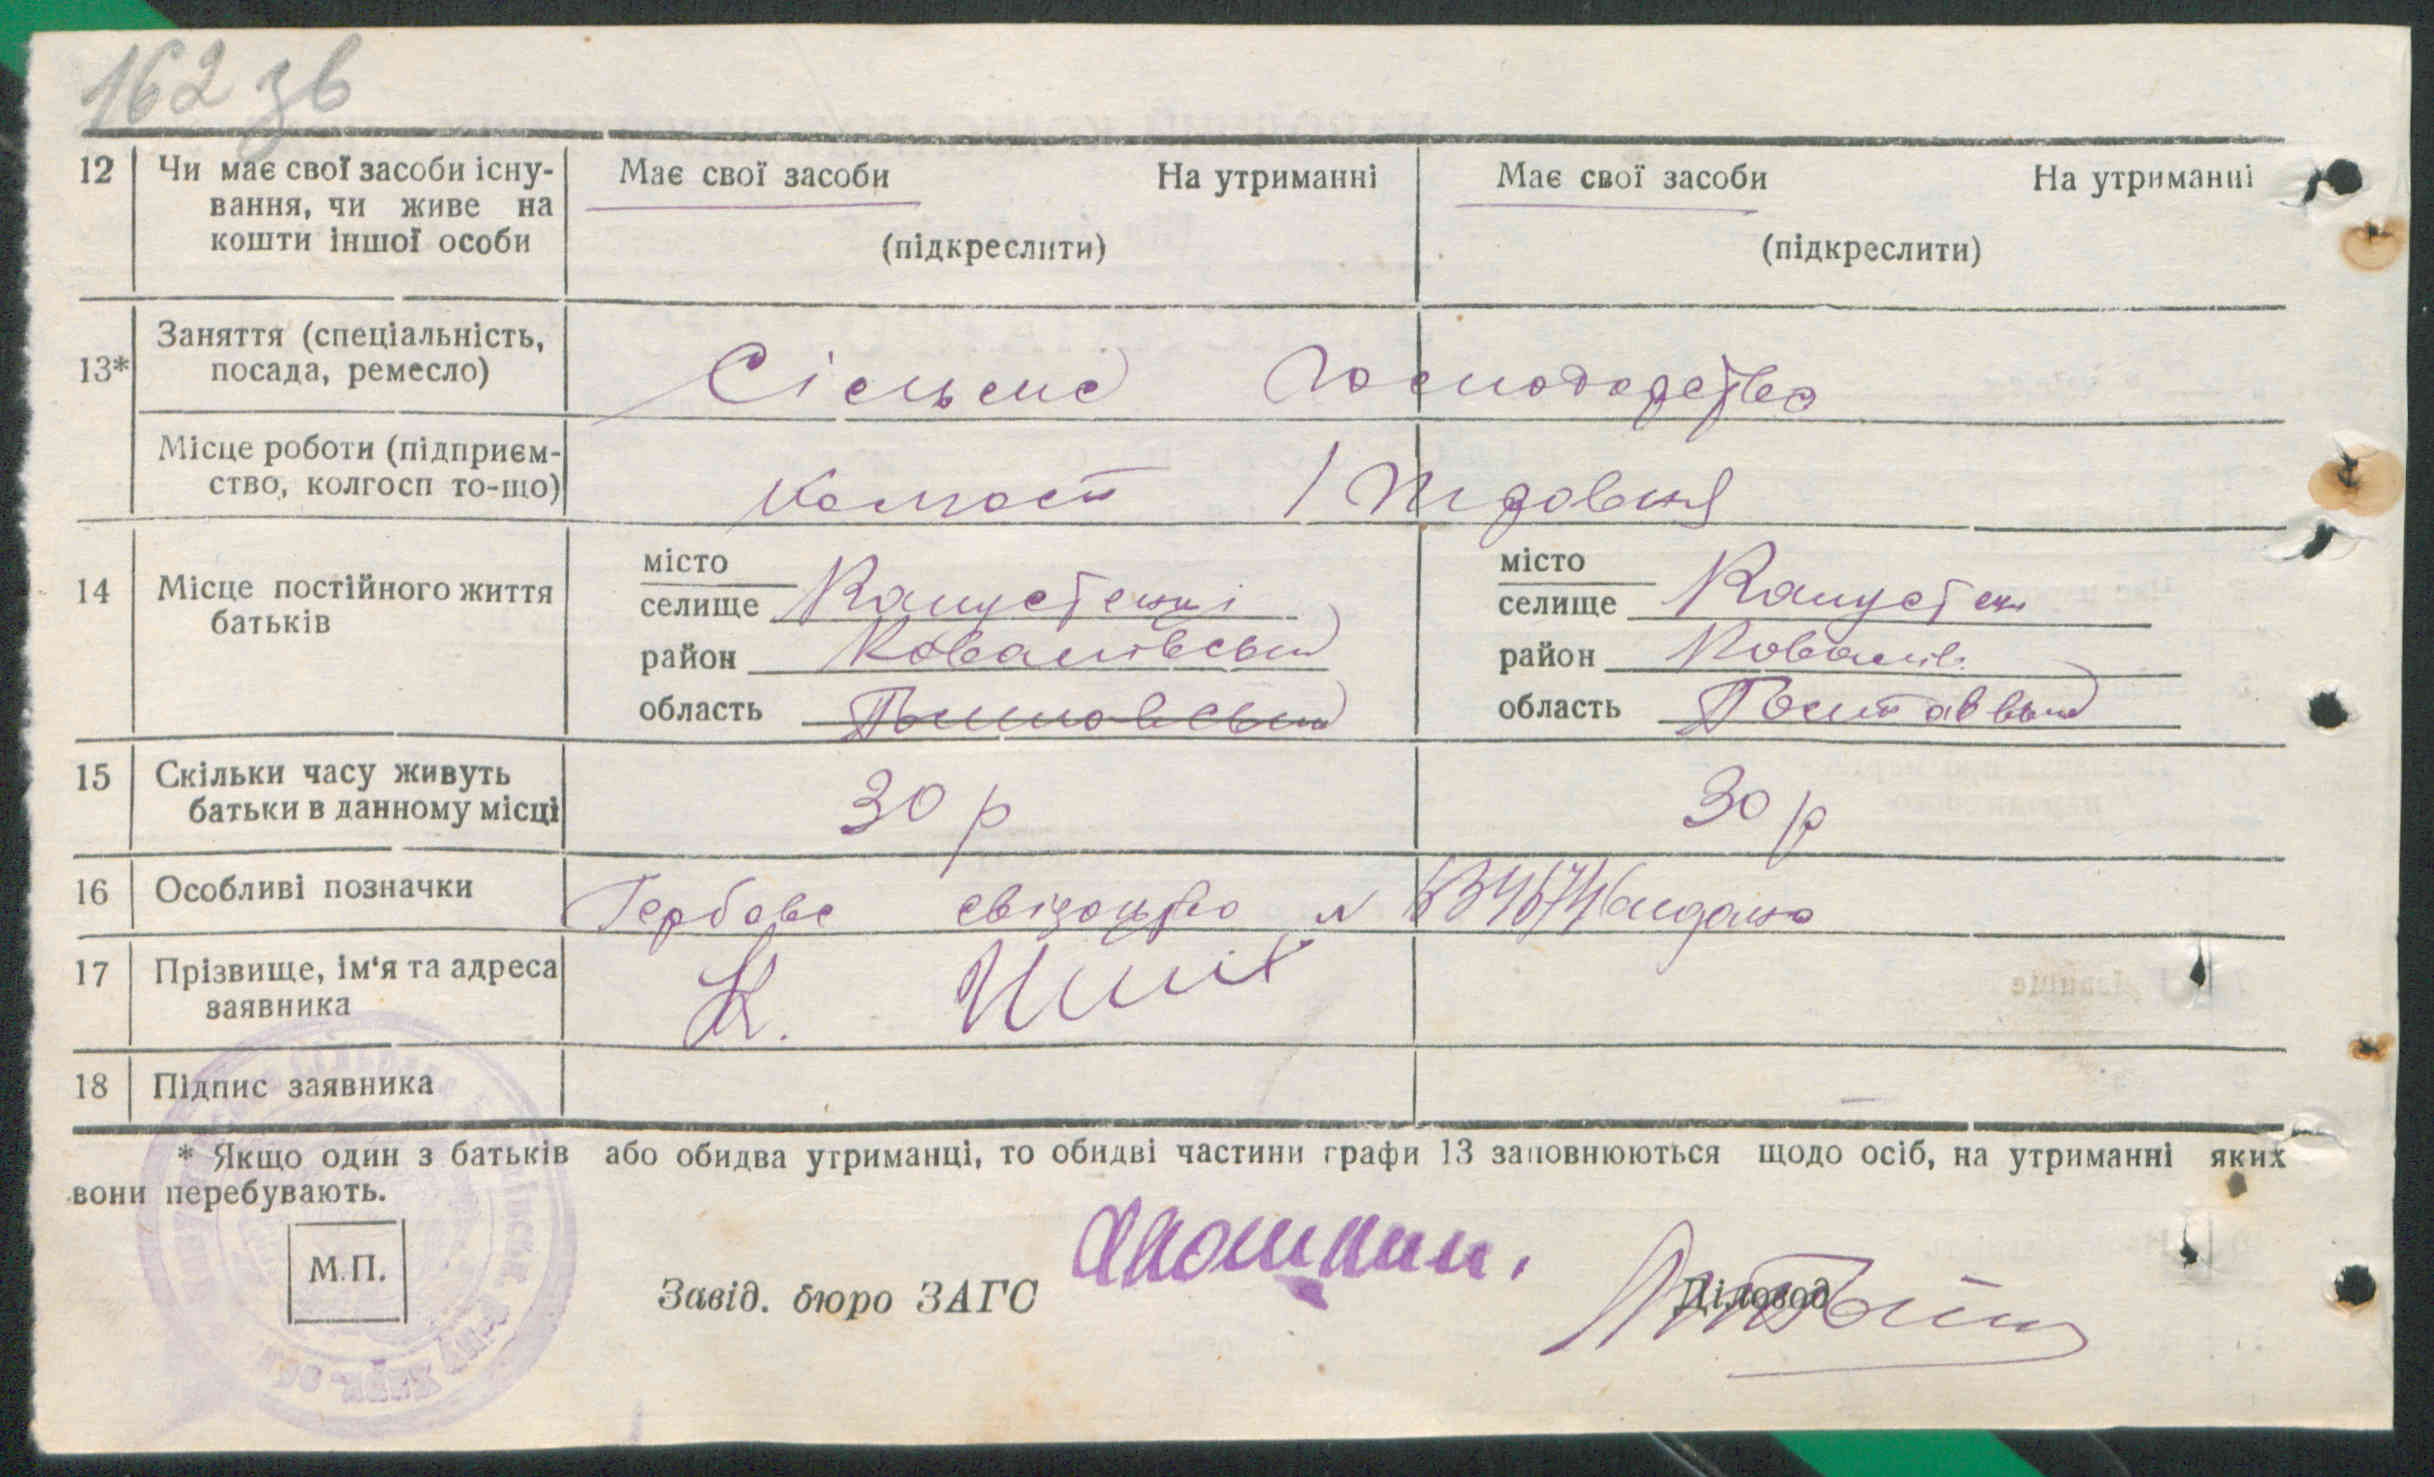 162 зв
12 Чи має свої засоби існу- Має свої засоби На утриманні Має свої засоби На утриманні
вання, чи живе на
кошти іншої особи (підкреслити) (підкреслити)
Заняття (спеціальність,
13* посада, ремесло) Сільське Господарство
Місце роботи (підприєм-
ство, колгосп то-що) Колгосп
місто місто
14 Місце постійного життя селище Капустенці селище
батьків район Ковалівський район Ковалів.
область область Полтавська
15 Скільки часу живуть 30 р 30 р
батьки в данному місці
16 Особливі позначки Гербове свідоцтво № видано
17 Прізвище, ім'я та адреса К.
заявника
18 Підпис заявника
* Якщо один з батьків або обидва утриманці, то обидві частини графи 13 заповнюються щодо осіб, на утриманні яких
вони перебувають.
М.П.
Завід. бюро ЗАГС Діловод